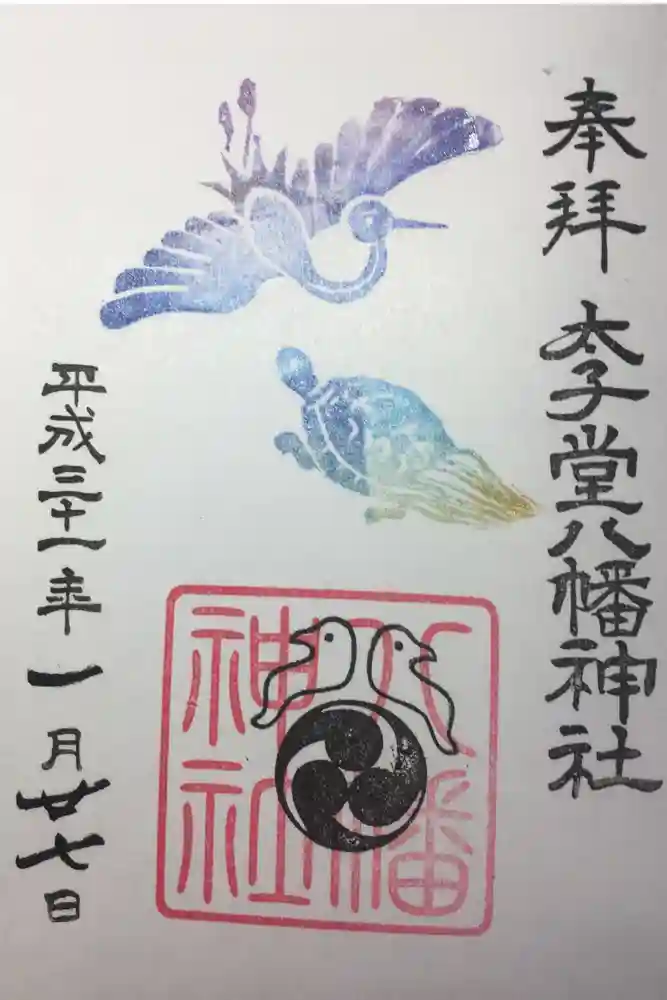 奉拝
太子堂八幡神社
八幡
神社
平成三十一年一月廿七日